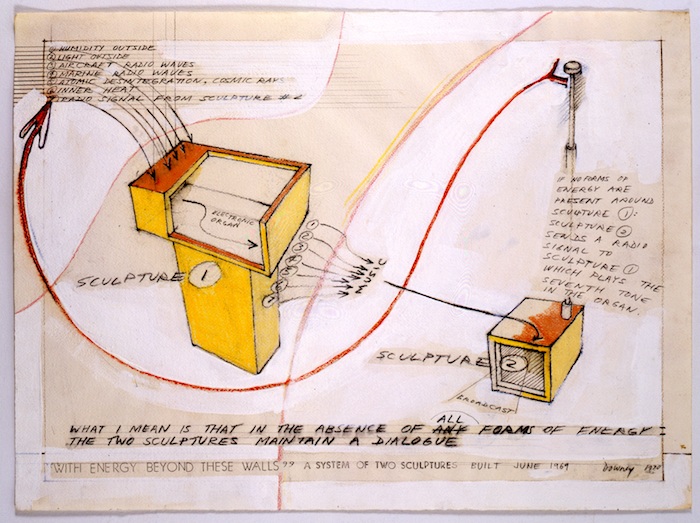 HUMIDITY OUTSIDE
LIGHT OUTSIDE
AIRCRAFT RADIO WAVES
MARINE RADIO WAVES
ATOMIC DESINTEGRATION, COSMIC RAYS
INNER HEAT
RADIO SIGNAL FROM SCULPTURE #2
ELECTRONIC
ORGAN
SCULPTURE 1
MUSIC
IF NO FORMS OF
ENERGY ARE
PRESENT AROUND
SCULPTURE 1:
SCULPTURE 2
SENDS A RADIO
SIGNAL TO
SCULPTURE 1
WHICH PLAYS THE
SEVENTH TONE
IN THE ORGAN.
SCULPTURE 2
BROADCAST
ALL
WHAT I MEAN IS THAT IN THE ABSENCE OF ANY FORMS OF ENERGY:
THE TWO SCULPTURES MAINTAIN A DIALOGUE
"WITH ENERGY BEYOND THESE WALLS" A SYSTEM OF TWO SCULPTURES BUILT JUNE 1969
Downey 1970